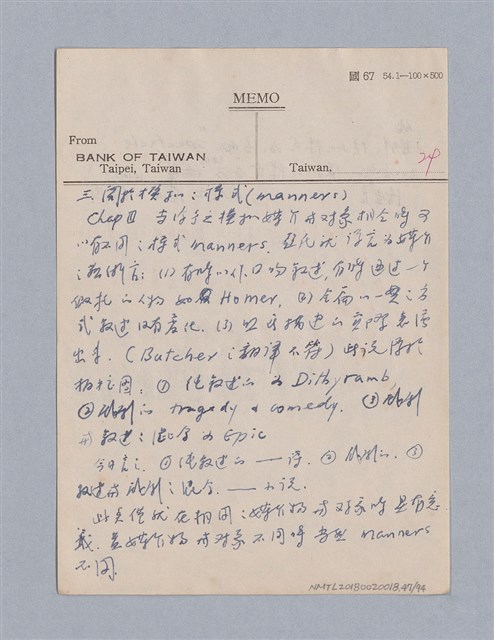 國 67 54.1—100×500
MEMO
From
BANK OF TAIWAN
Taipei, Taiwan
Taiwan,
24
三、関於模擬之樣式(manners)
Chap III 當 模擬媒介或對象相同時可
以有不同之樣式 manners. 亞氏
(1) 有時以作 口吻敘述,有時通過一个
假托的人物 如 Homer. (2) 全篇以一貫之方
式敘述 没有変化. (3) 描述的
(Butcher 之翻譯不符) 此説
柏拉図: ① 純敘述的 為 Dithyramb
② 戲劇的 tragedy & comedy. ③ 戲劇
或敘述之混合 為 Epic
今日言之. ① 純敘述的——詩. ② 戲劇的. ③
敘述或戲劇之混合.——小説.
此点僅就在相同之媒介物或對象時具有意
義. 媒介物或對象不同時 manners
不同.
NMTL20180020018.47/94